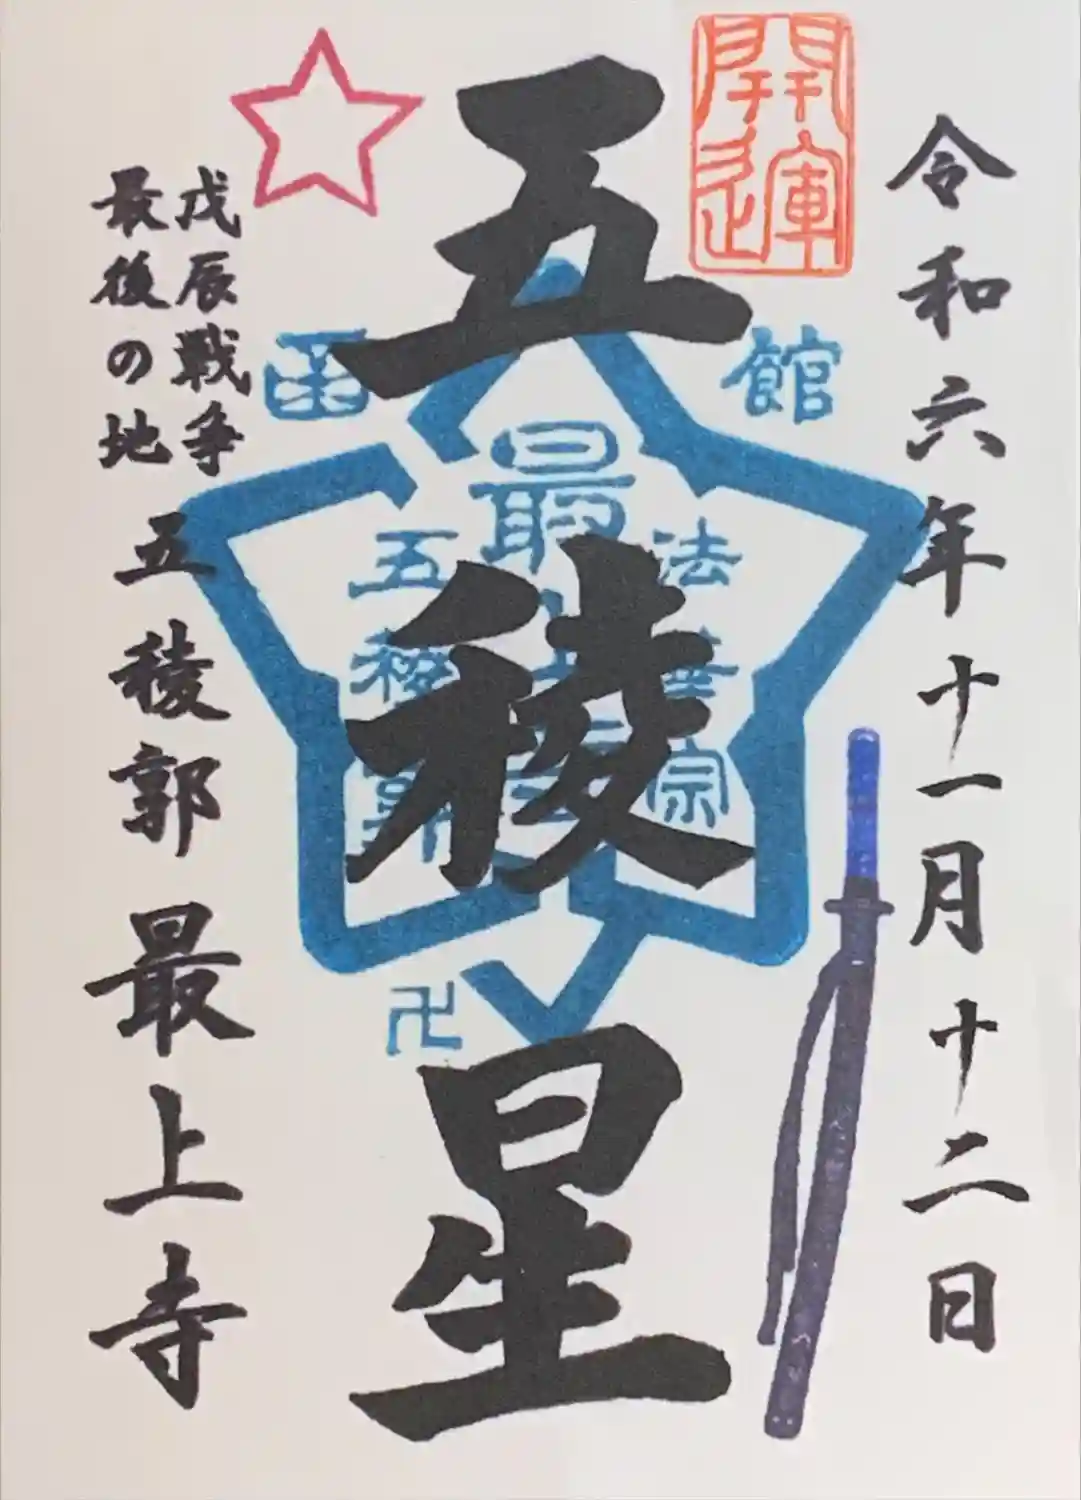 令和六年十一月十二日
開運
五稜星
函館
最上寺
法華宗
五稜郭
卍
戊辰戦争
最後の地
五稜郭最上寺